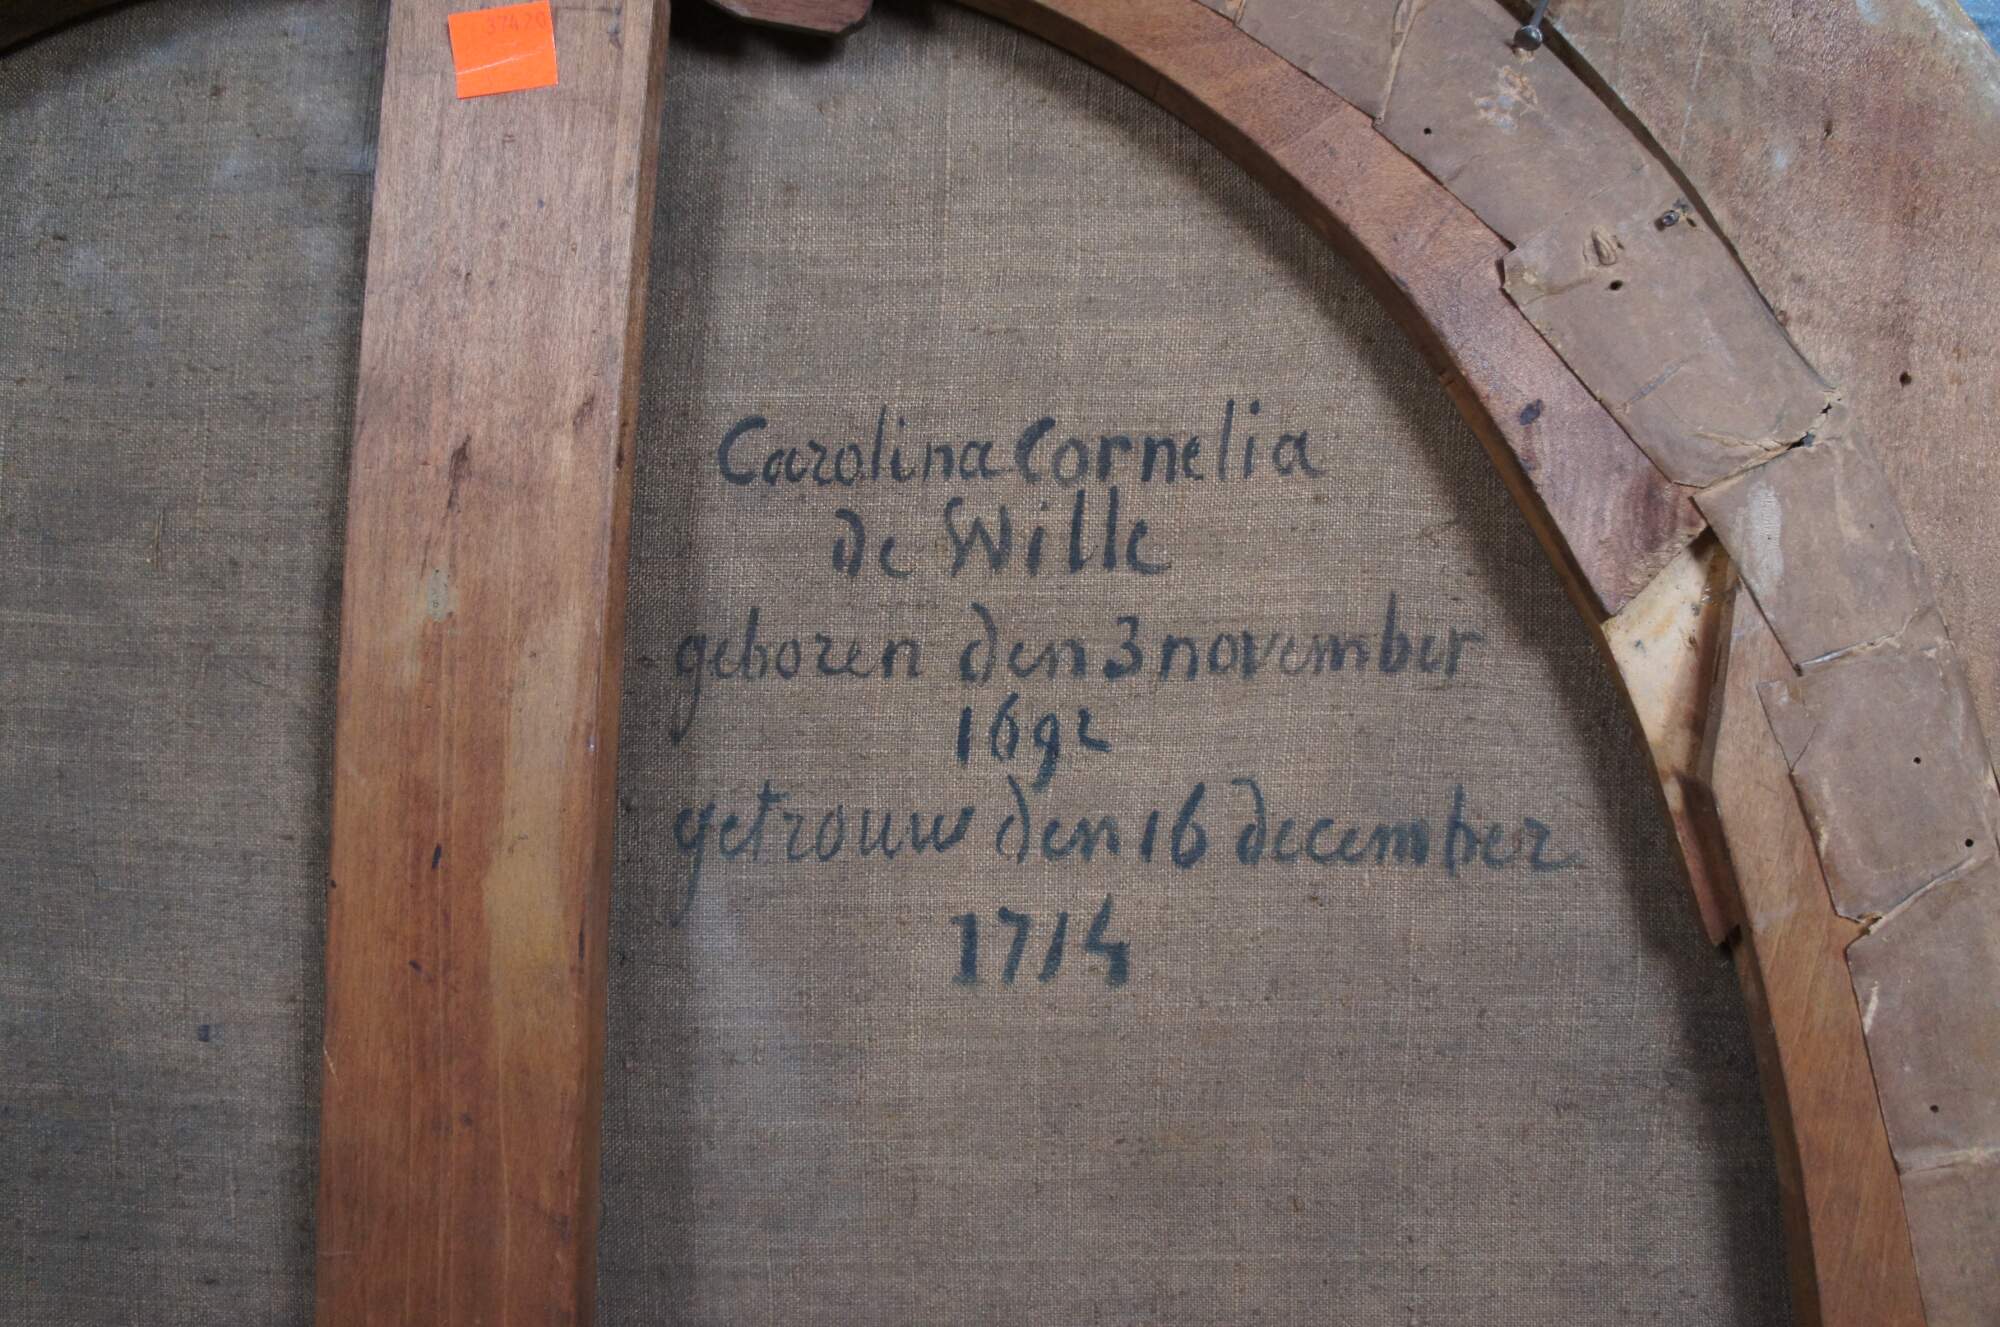 37420
Carolina Cornelia
de Wille
geboren den 3 november
1692
getrouw den 16 december
1714